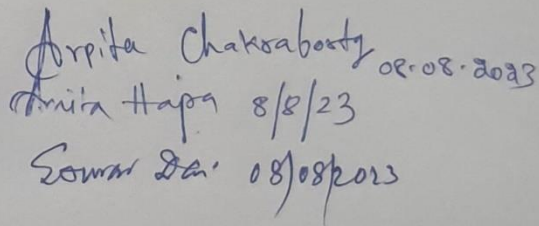 Arpita Chakraborty 08.08.2023
Amita Hapa 8/8/23
Sourav De. 08/08/2023